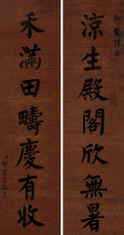 涼生殿閣欣無暑
禾滿田疇慶有收